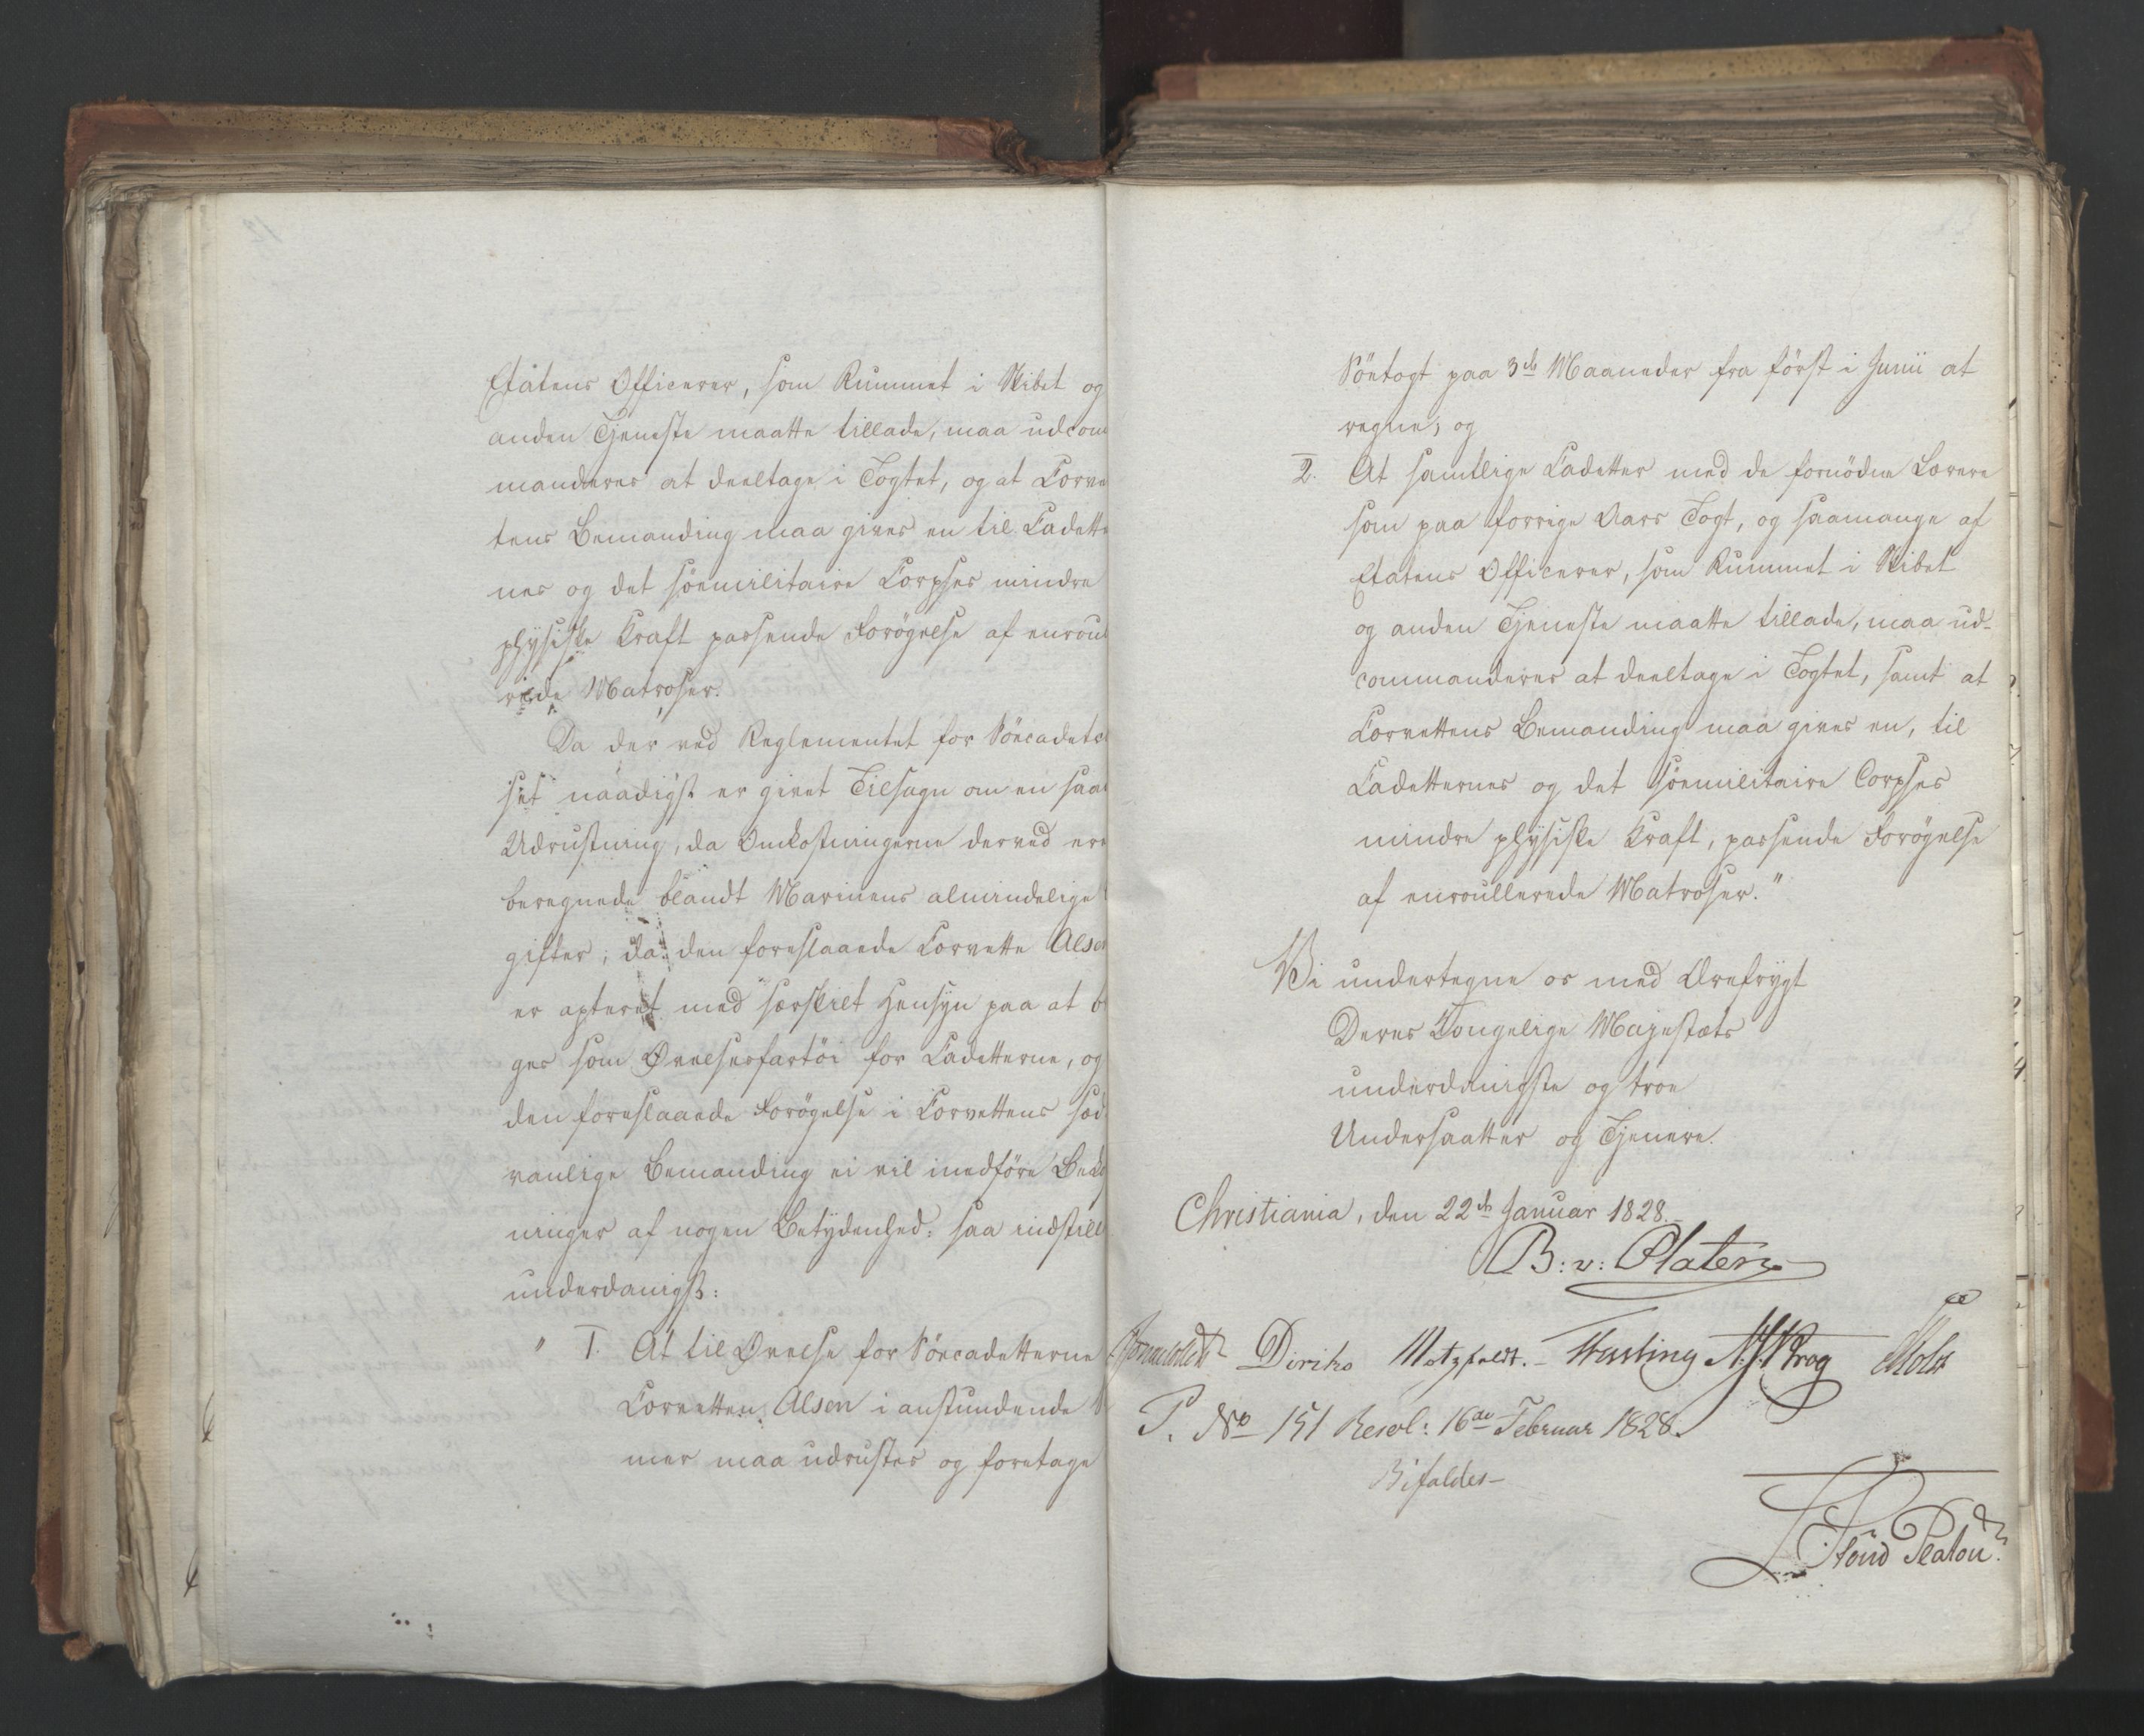 Etatens Officerer, som Rummet i Skibet og
anden Tjeneste maatte tillade, maa udcom
manderes at deeltage i Togtet, og at Corve
tens Bemanding maa gives en til Cadette
nes og det söemilitaire Corpses mindre
physiske Kraft passende Forögelse af enroul
rede Matroser.
Da der ved Reglementet for Söecadetc
set naadigst er givet Tilsagn om en saa
Udrustning, da Omkostningerne derved ere
beregnede blandt Marinens almindelige
gifter, da den foreslaaede Corvette Alsen
er apteret med særskilt Hensyn paa at b
ges som Øvelsesfartöi for Cadetterne, og
den foreslaaede Forögelse i Corvettens sæd
vanlige Bemanding ei vil medföre Beko
ninger af nogen Betydenhed: saa indstill
underdanigst:
" 1. At til Øvelse for Söecadetterne
Corvetten Alsen i anstundende
mer maa udrustes og foretage
Söetogt paa 3de Maaneder fra först i Junii at
regne; og
2. At samtlige Cadetter med de fornödne Lærere
som paa forrige Aars Togt, og saamange af
Etatens Officerer, som Rummet i Skibet
og anden Tjeneste maatte tillade, maa ud-
commanderes at deeltage i Togtet, samt at
Corvettens Bemanding maa gives en, til
Cadetternes og det söemilitaire Corpses
mindre physiske Kraft, passende Forögelse
af enroullerede Matroser."
Vi undertegne os med Ærefrygt
Deres Kongelige Majestæts
underdanigste og troe
Undersaatter og Tjenere.
Christiania, den 22de Januar 1828.
B: v: Platen
Diriks Motzfeldt. Fasting Krog Holst
P. No 151 Resol: 16de Februar 1828.
Bifaldes